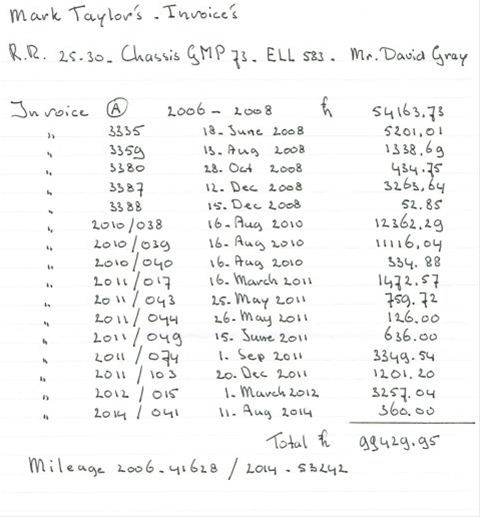 Mark Taylor's - Invoice's
R.R. 25-30 - Chassis GMP 73 - ELL 583 - Mr. David Gray
Invoice Ⓐ 2006 - 2008 £ 54163,73
" 3335 18 - June 2008 5201,01
" 3359 13 - Aug 2008 1338.69
" 3380 28. Oct 2008 434.75
" 3387 12. Dec 2008 3263,64
" 3388 15. Dec 2008 52.85
" 2010/038 16 - Aug 2010 12362,29
" 2010/039 16 - Aug 2010 11116,04
" 2010/040 16 - Aug 2010 334.88
" 2011/017 16 - March 2011 1472.57
" 2011/043 25 - May 2011 759.72
" 2011/044 26 - May 2011 126.00
" 2011/049 15. June 2011 636.00
" 2011/074 1. Sep 2011 3349.54
" 2011/103 20. Dec 2011 1201.20
" 2012/015 1. March 2012 3257.04
" 2014/041 11. Aug 2014 360.00
Total £ 99429.95
Mileage 2006 - 41628 / 2014 - 53242